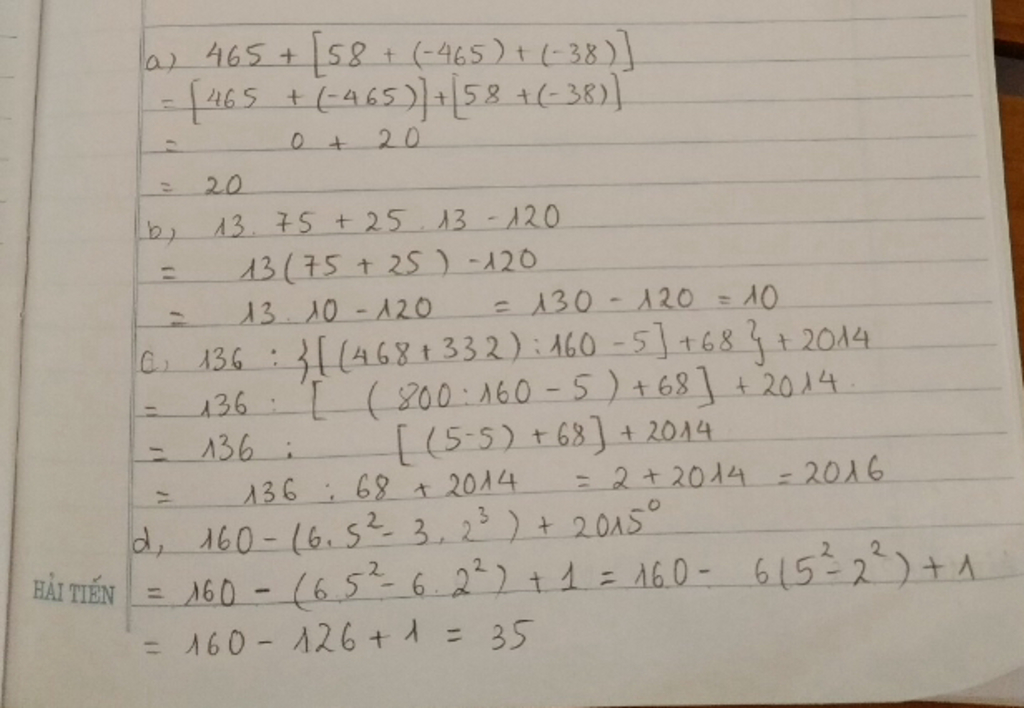 a) 465 + [58 + (-465) + (-38)]
= [465 + (-465)] + [58 + (-38)]
= 0 + 20
= 20
b, 13. 75 + 25 . 13 - 120
= 13(75 + 25) - 120
= 13. 10 - 120 = 130 - 120 = 10
c, 136 : }[(468 + 332) : 160 - 5] + 68 } + 2014
= 136 : [ (800 : 160 - 5) + 68] + 2014.
= 136 : [(5-5) + 68] + 2014
= 136 : 68 + 2014 = 2 + 2014 = 2016
d, 160 - (6. 5² - 3. 2³) + 2015⁰
= 160 - (6.5² - 6. 2²) + 1 = 160 - 6(5² - 2²) + 1
HẢI TIẾN
= 160 - 126 + 1 = 35